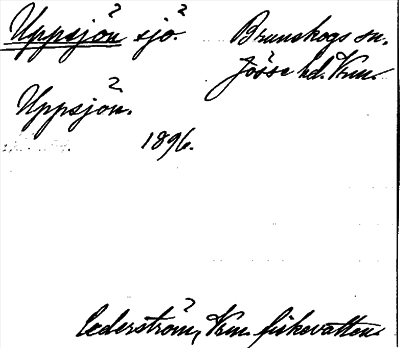 Uppsjön sjö.
Brunskogs sn.
Jösse hd. Vrm.
Uppsjön.
1896.
Cederström, Vrm. fiskevatten